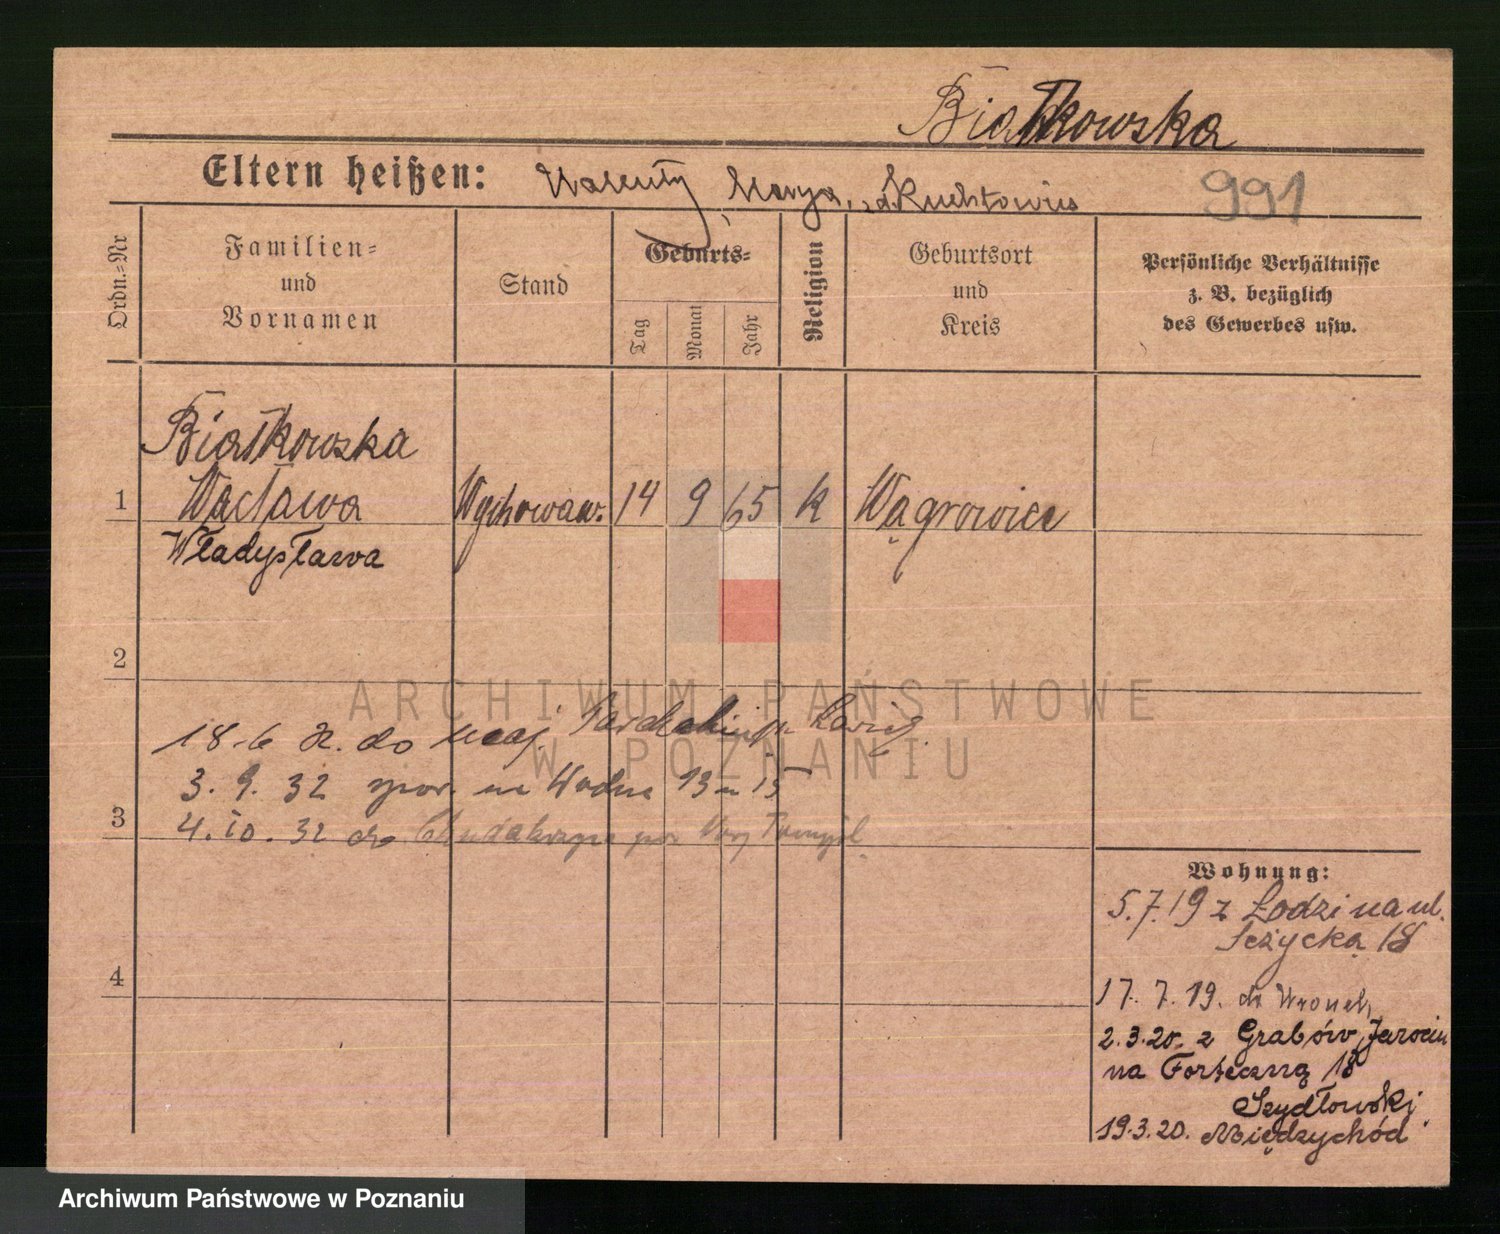 Białkowska
Eltern heißen: Walenty Marya, z d. Kuchtowicz
991
Ordn.=Nr
Familien=
und
Vornamen
Stand
Geburts=
Tag
Monat
Jahr
Religion
Geburtsort
und
Kreis
Persönliche Verhältnisse
z. B. bezüglich
des Gewerbes usw.
Białkowska
1 Wacława Wychowaw. 14 9 65 k Wągrowiec
Władysława
2
ARCHIWUM PAŃSTWOWE
W POZNANIU
18-6 do maj.
3. 9. 32 na Wodna 13 m 15
3 4. 10. 32 do
Wohnung:
5.7.19 z Łodzi na ul.
Jeżycka 18
4
17. 7. 19. do Wronek
2.3.20. z Grabów, Jarocin
na Forteczną 18
Szydłowski
19.3.20. Międzychód
Archiwum Państwowe w Poznaniu